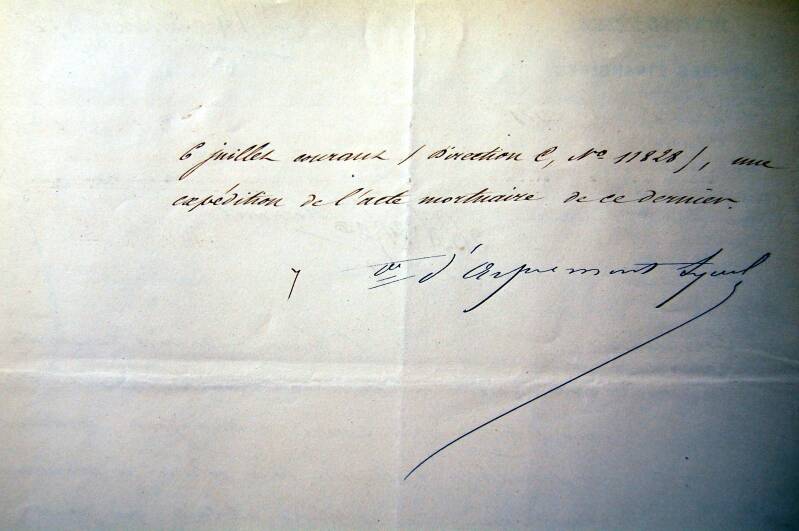 6 juillet courant (Direction C, Nº 11828), une
expédition de l'acte mortuaire de ce dernier.
Cte d'Aspremont Lynden